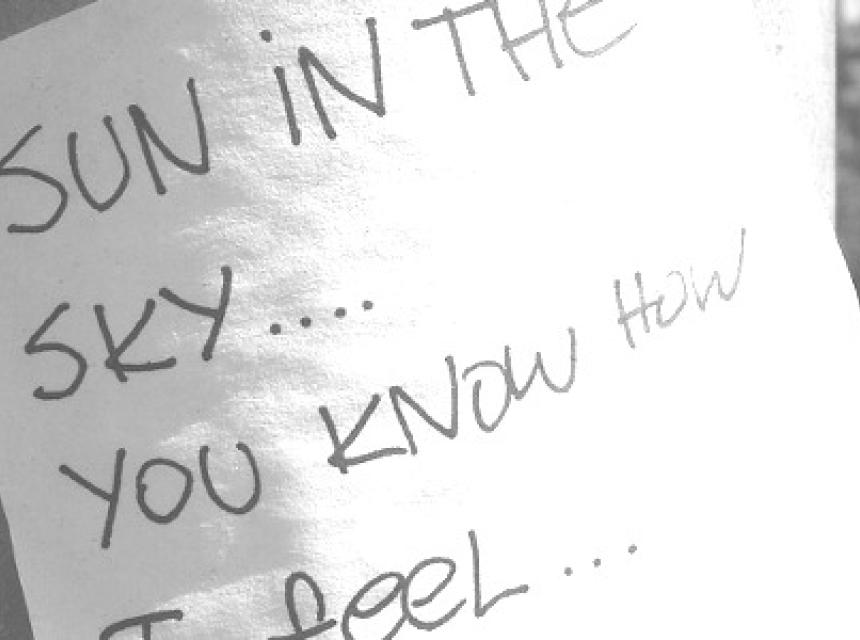 SUN iN THE
SKY....
YOU KNOW HOW
I feeL...